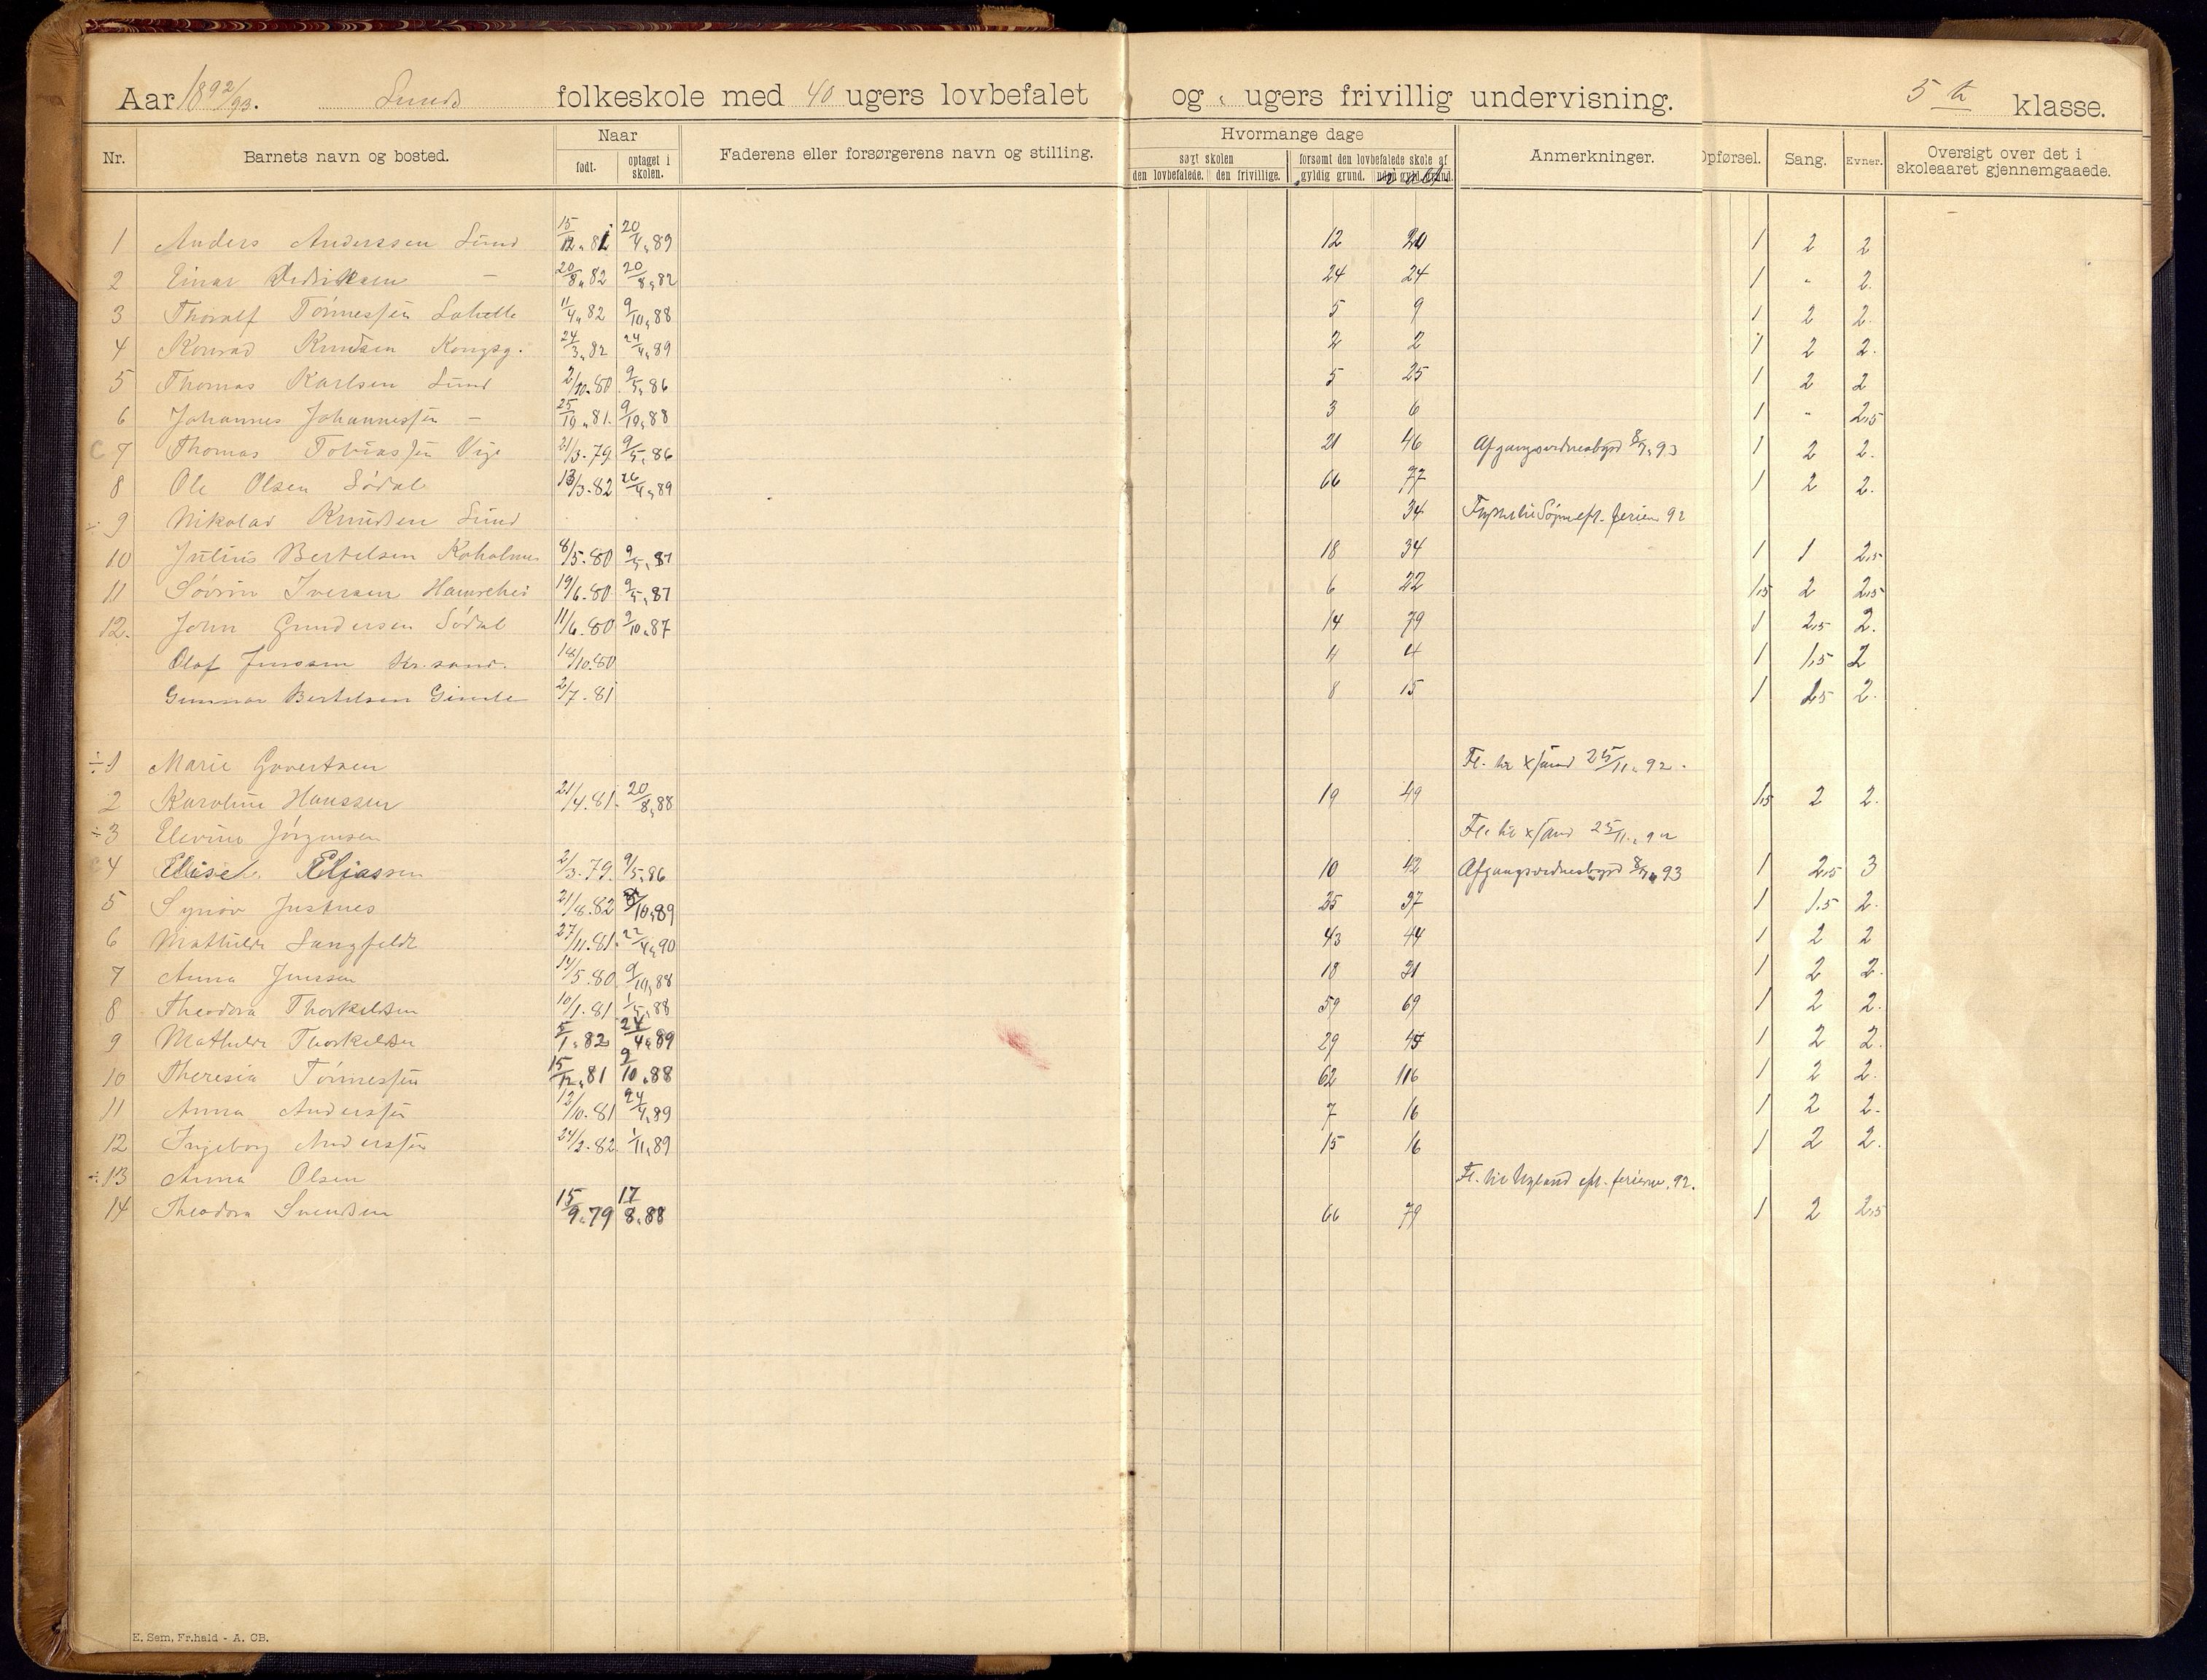 Aar 1892/93. Lunds folkeskole med 40 ugers lovbefalet og „ ugers frivillig undervisning. 5te klasse.
Nr. Barnets navn og bosted. Naar født. optaget i skolen. Faderens eller forsørgerens navn og stilling. Hvormange dage søgt skolen den lovbefalede. den frivillige. forsømt den lovbefalede skole af gyldig grund. uden gyld. grund. i alt. Anmerkninger. Opførsel. Sang. Evner. Oversigt over det i skoleaaret gjennemgaaede.
1 Anders Anderssen Lund 15/12 „ 81 20/4 „ 89 12 20 1 2 2
2 Einar Didriksen — 20/8 „ 82 20/8 „ 82 24 24 1 „ 2.
3 Thoralf Tønnessen 11/4 „ 82 9/10 „ 88 5 9 1 2 2.
4 Konrad Knudsen Kongsg. 24/3 „ 82 24/4 „ 89 2 2 1 2 2.
5 Thomas Karlsen Lund 2/10. 80 9/5 „ 86 5 25 1 2 2
6 Johannes Johannessen — 25/10 „ 81. 9/10 „ 88 3 6 1 „ 2,5
c 7 Thomas Tobiassen Vige 21/3. 79 9/5 „ 86 21 46 Afgangsvidnesbyrd 8/7 „ 93 1 2 2.
8 Ole Olsen Sødal 13/3. 82 26/4 „ 89 66 77 1 2 2.
÷ 9 Nikolai Knudsen Lund 34 eft. ferien 92
10 Julius Bertelsen Koholmen 8/5. 80 9/5 „ 87 18 34 1 1 2,5
11 Søvrin Iversen 19/6. 80 9/5 „ 87 6 22 1,5 2 2,5
12. John Gundersen Sødal 11/6. 80 9/10 „ 87 14 79 1 2,5 2.
Olaf Jenssen Kr.sand. 18/10. 80 4 4 1 1,5 2
Gunnar Bertelsen Gimle 2/7. 81 8 15 1 2,5 2.
÷ 1 Marie Govertsen Fl. til X sand 25/11 „ 92.
2 Karoline Hanssen 21/4. 81. 20/8 „ 88 19 49 1,5 2 2.
÷ 3 Elevine Jørgensen Fl. til X sand 25/11 „ 92
c 4 Elisek. Eliassen 2/3. 79. 9/5 „ 86 10 42 Afgangsvidnesbyrd 8/7 „ 93 1 2,5 3
5 Synøv Justnes 21/8. 82 /10 „ 89 35 37 1 1,5 2.
6 Mathilde Langfeldt 27/11. 81. 22/4 „ 90 43 44 1 2 2
7 Anna Jenssen 14/5. 80 9/10 „ 88 18 31 1 2 2.
8 Theodora Thorkeldsen 10/1. 81 1/5 „ 88 59 69 1 2 2.
9 Mathilde Thorkeldsen 5/1 „ 82 24/4 „ 89 29 45 1 2 2.
10 Theresia Tønnessen 15/12 „ 81 9/10 „ 88 62 116 1 2 2.
11 Anna Anderssen 12/10. 81 24/4 „ 89 7 16 1 2 2.
12 Ingeborg Anderssen 24/2. 82. 1/11 „ 89 15 16 1 2 2.
÷ 13 Anna Olsen Fl. til eft. ferierne. 92.
14 Theodora Svendsen 15/9 „ 79 17/8 „ 88 66 79 1 2 2,5
E. Sem, Fr.hald - A. CB.